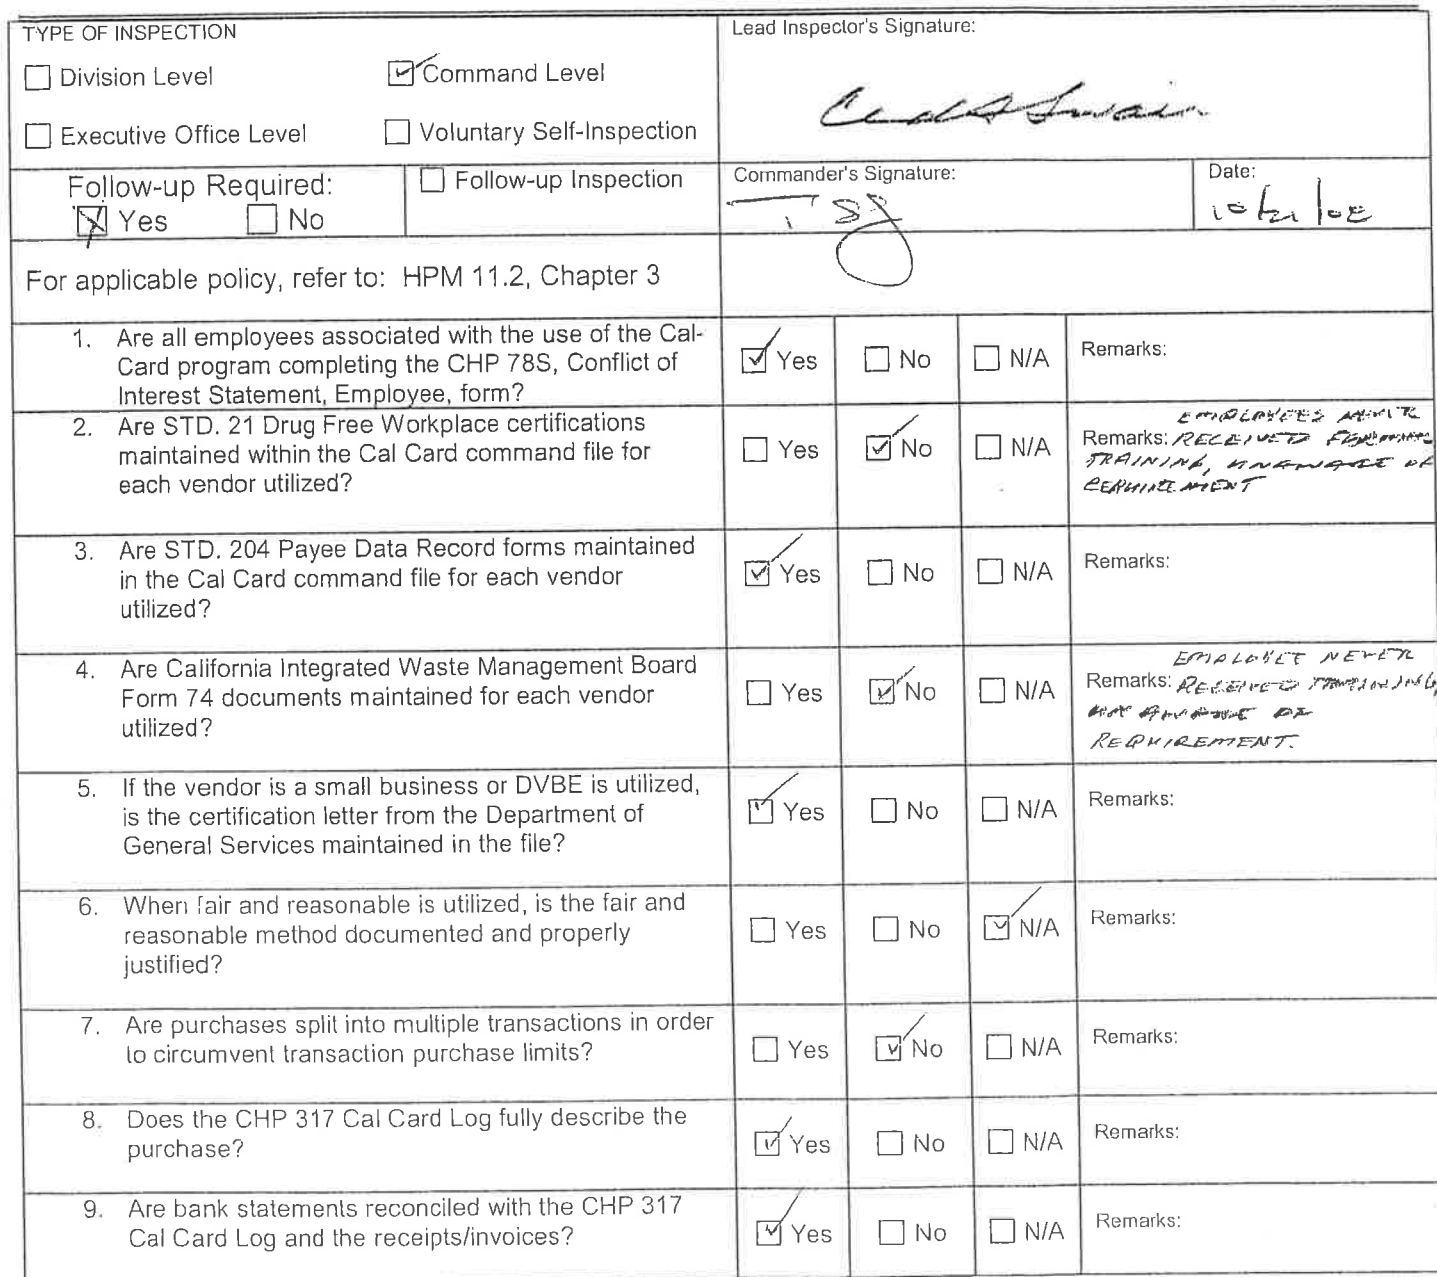 TYPE OF INSPECTION
Division Level
Command Level
Executive Office Level
Voluntary Self-Inspection
Lead Inspector's Signature:
Follow-up Required:
Yes No
Follow-up Inspection
Commander's Signature:
Date:
For applicable policy, refer to: HPM 11.2, Chapter 3
1. Are all employees associated with the use of the Cal-
Card program completing the CHP 78S, Conflict of
Interest Statement, Employee, form?
Yes No N/A Remarks:
2. Are STD. 21 Drug Free Workplace certifications
maintained within the Cal Card command file for
each vendor utilized?
Yes No N/A
EMPLOYEES NEVER
Remarks: RECEIVED
TRAINING, UNAWARE OF
REQUIREMENT
3. Are STD. 204 Payee Data Record forms maintained
in the Cal Card command file for each vendor
utilized?
Yes No N/A Remarks:
4. Are California Integrated Waste Management Board
Form 74 documents maintained for each vendor
utilized?
Yes No N/A
EMPLOYEE NEVER
Remarks: RECEIVED TRAINING,
REQUIREMENT.
5. If the vendor is a small business or DVBE is utilized,
is the certification letter from the Department of
General Services maintained in the file?
Yes No N/A Remarks:
6. When fair and reasonable is utilized, is the fair and
reasonable method documented and properly
justified?
Yes No N/A Remarks:
7. Are purchases split into multiple transactions in order
to circumvent transaction purchase limits?
Yes No N/A Remarks:
8. Does the CHP 317 Cal Card Log fully describe the
purchase?
Yes No N/A Remarks:
9. Are bank statements reconciled with the CHP 317
Cal Card Log and the receipts/invoices?
Yes No N/A Remarks: